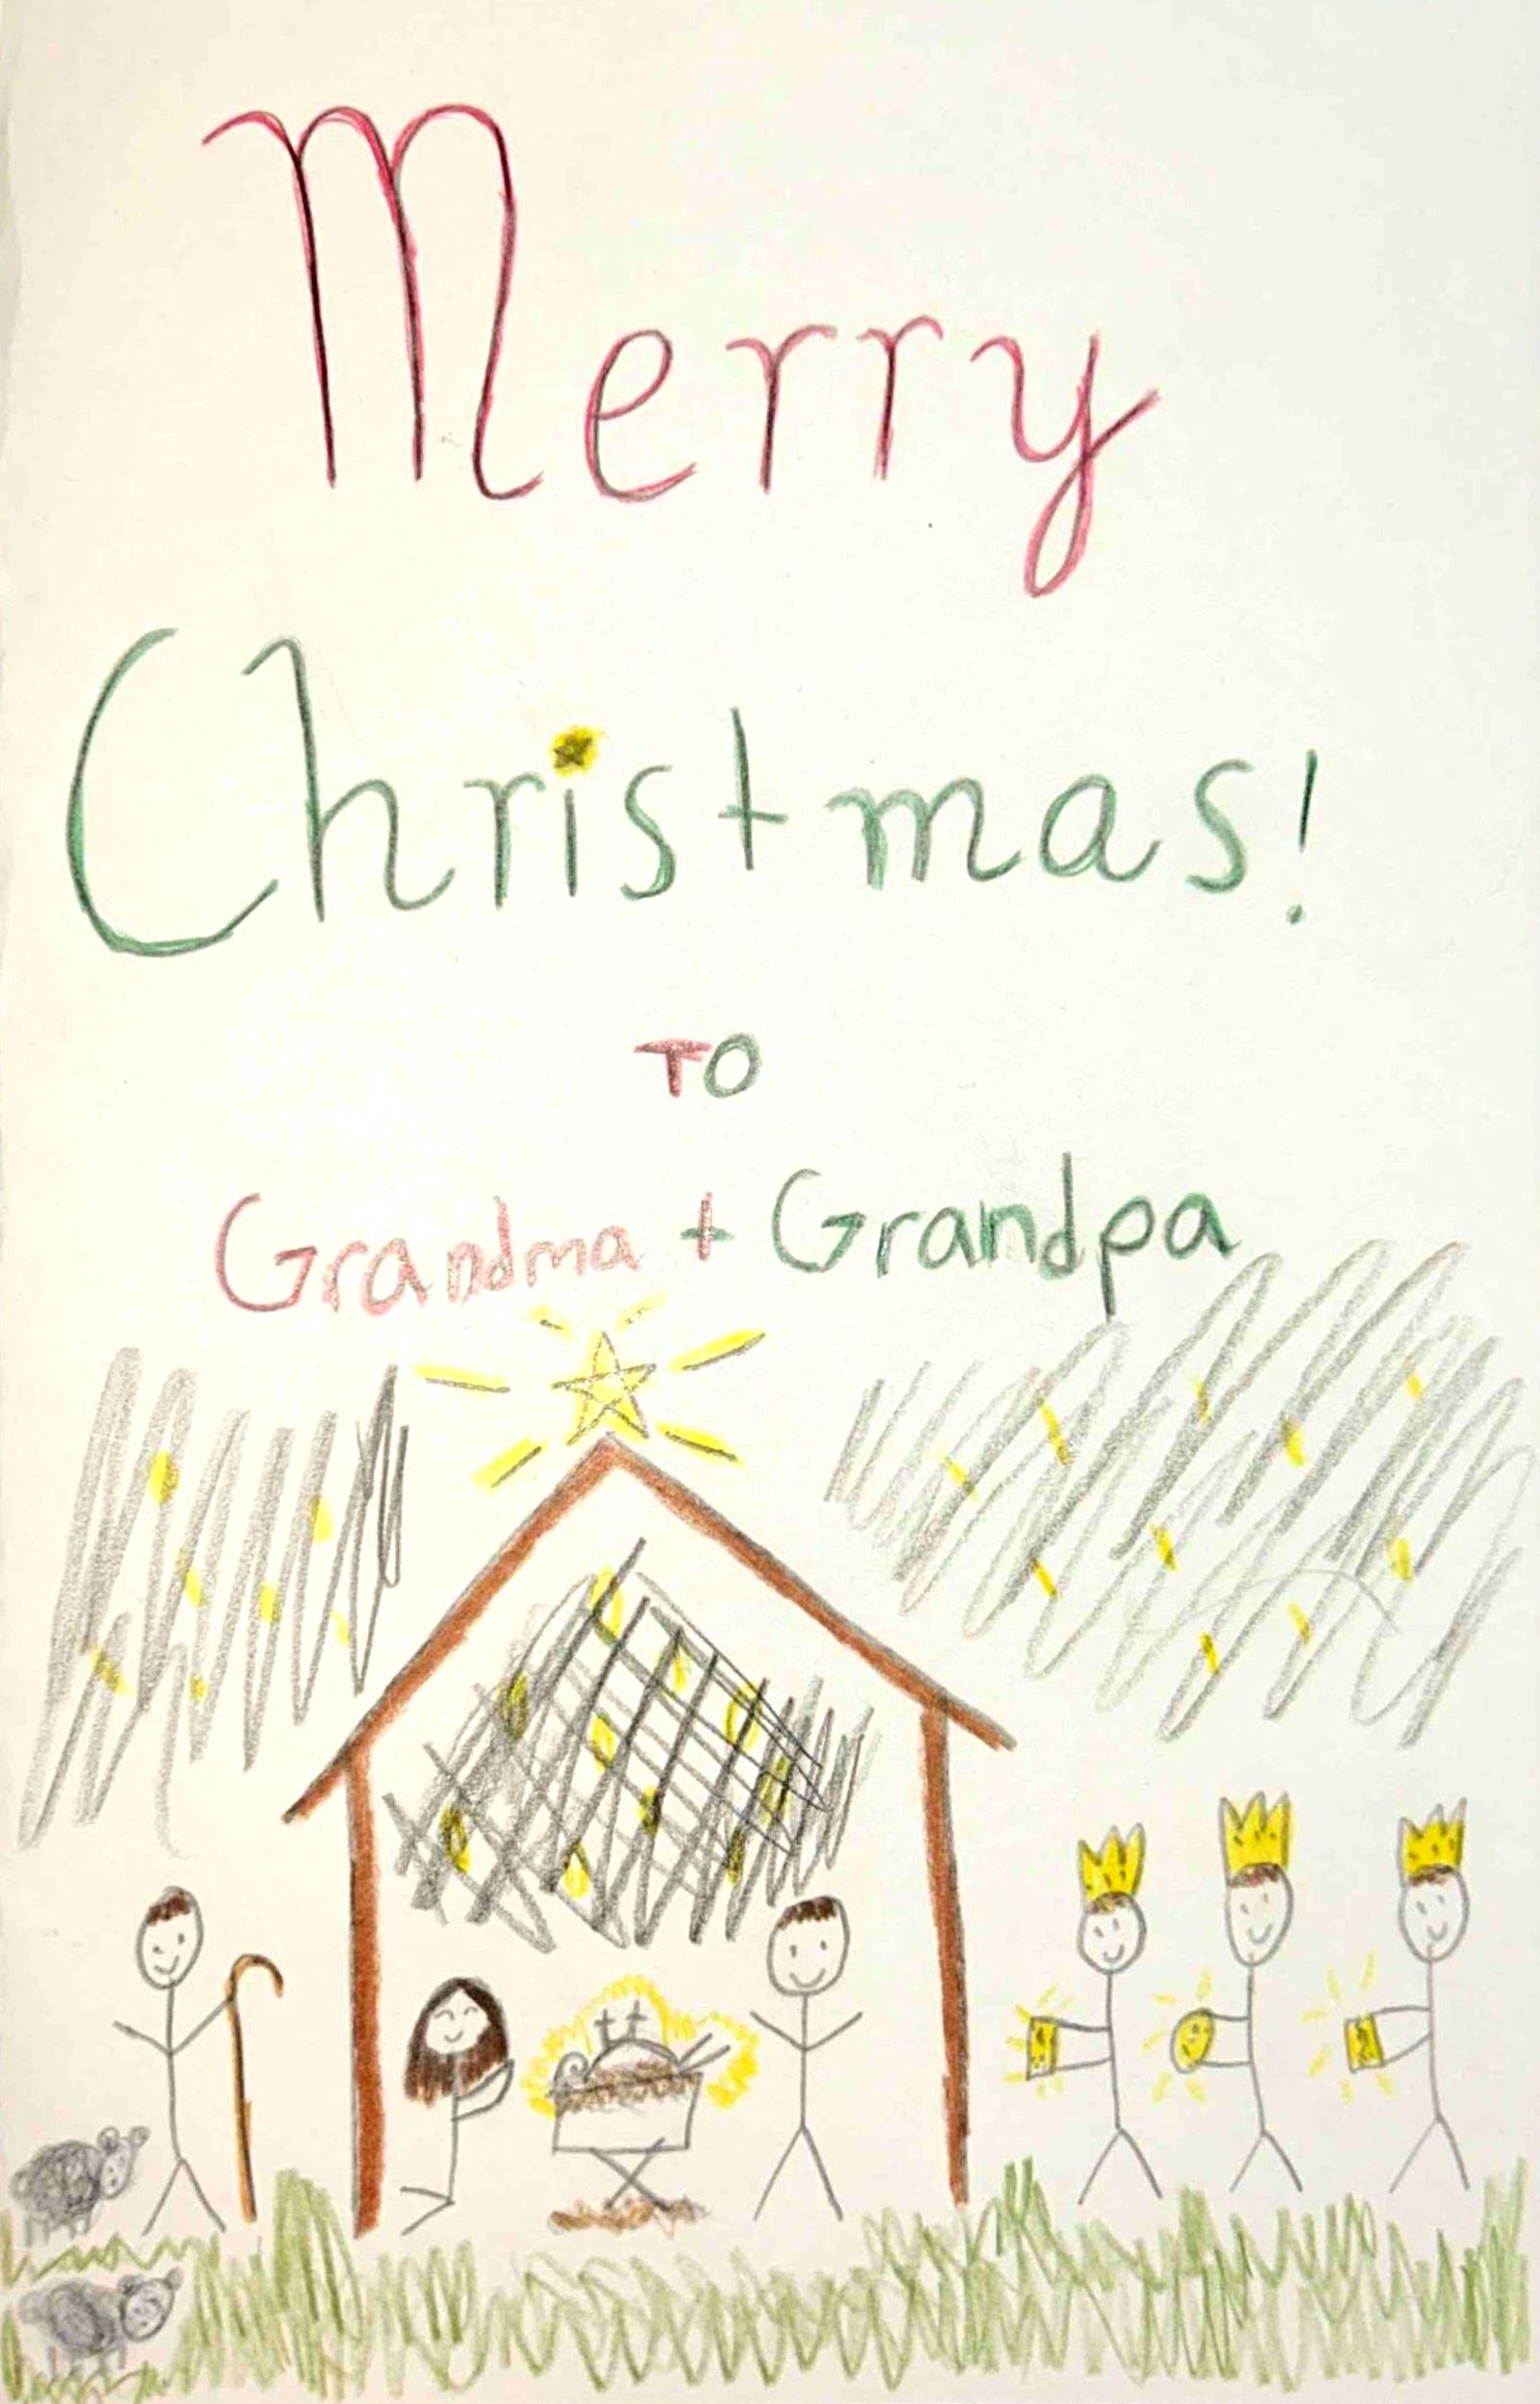 Merry
Christmas!
TO
Grandma + Grandpa